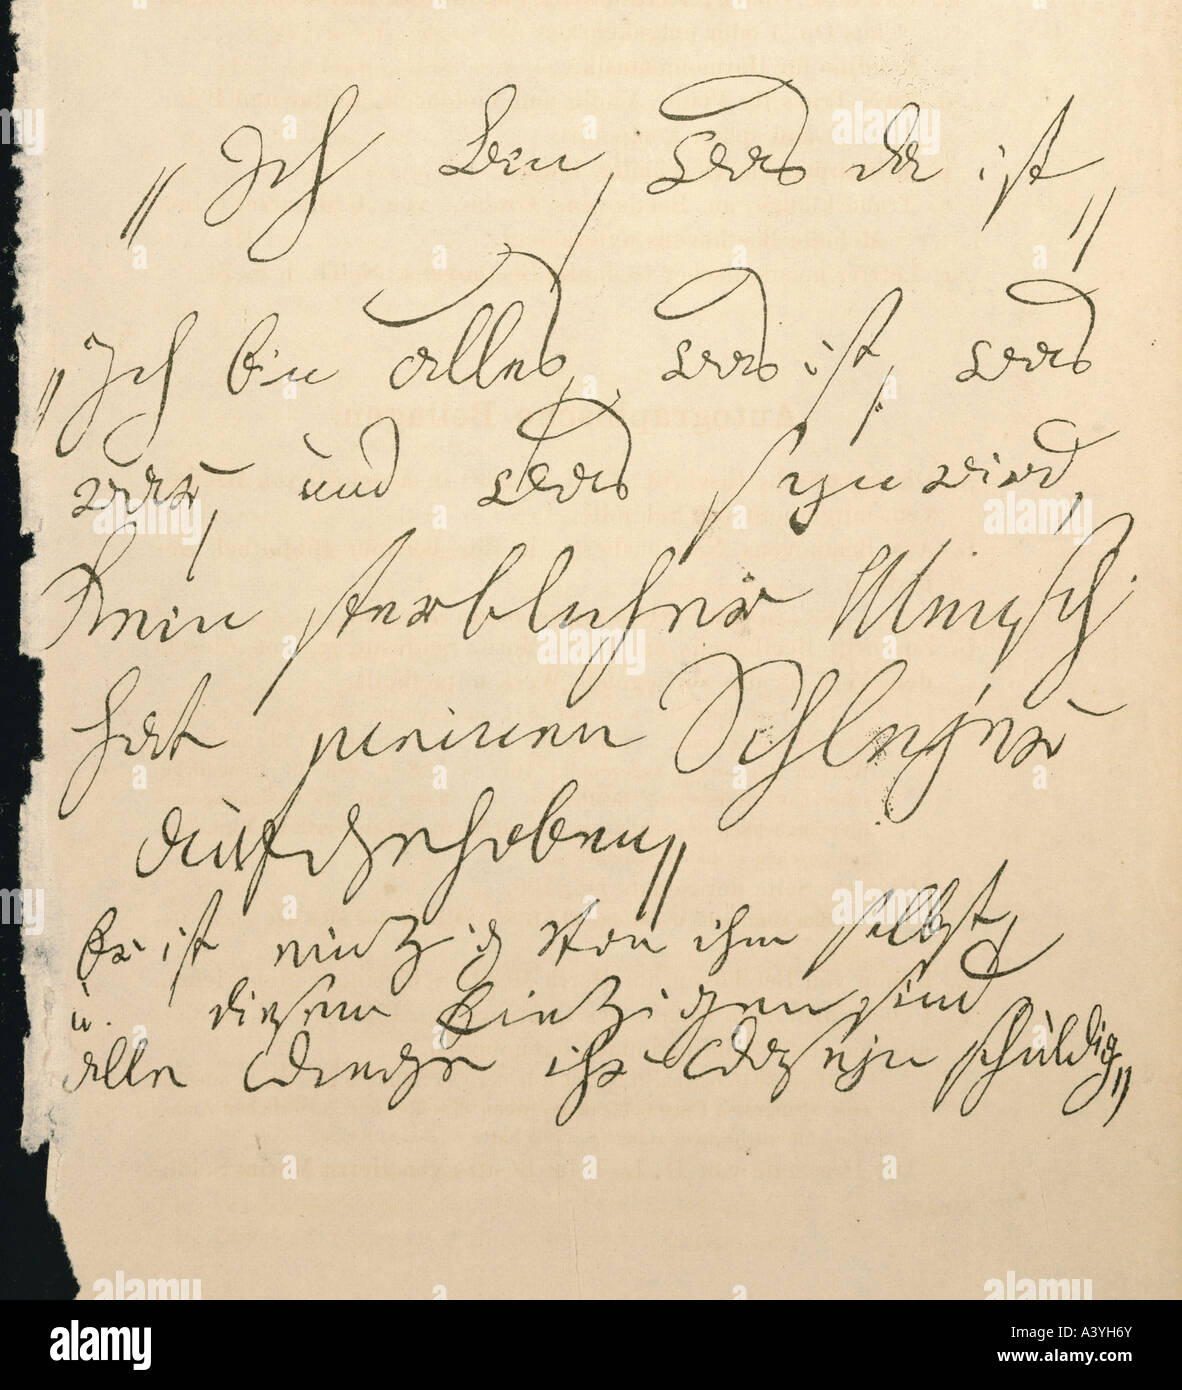 „Ich bin, was da ist„
„Ich bin alles, was ist, was
war, und was seyn wird,
kein sterblicher Mensch
hat meinen Schleyer
aufgehoben„
Er ist einzig von ihm selbst,
u. diesem Einzigen sind
alle Dinge ihr Daseyn schuldig„
alamy
Image ID: A3YH6Y
www.alamy.com